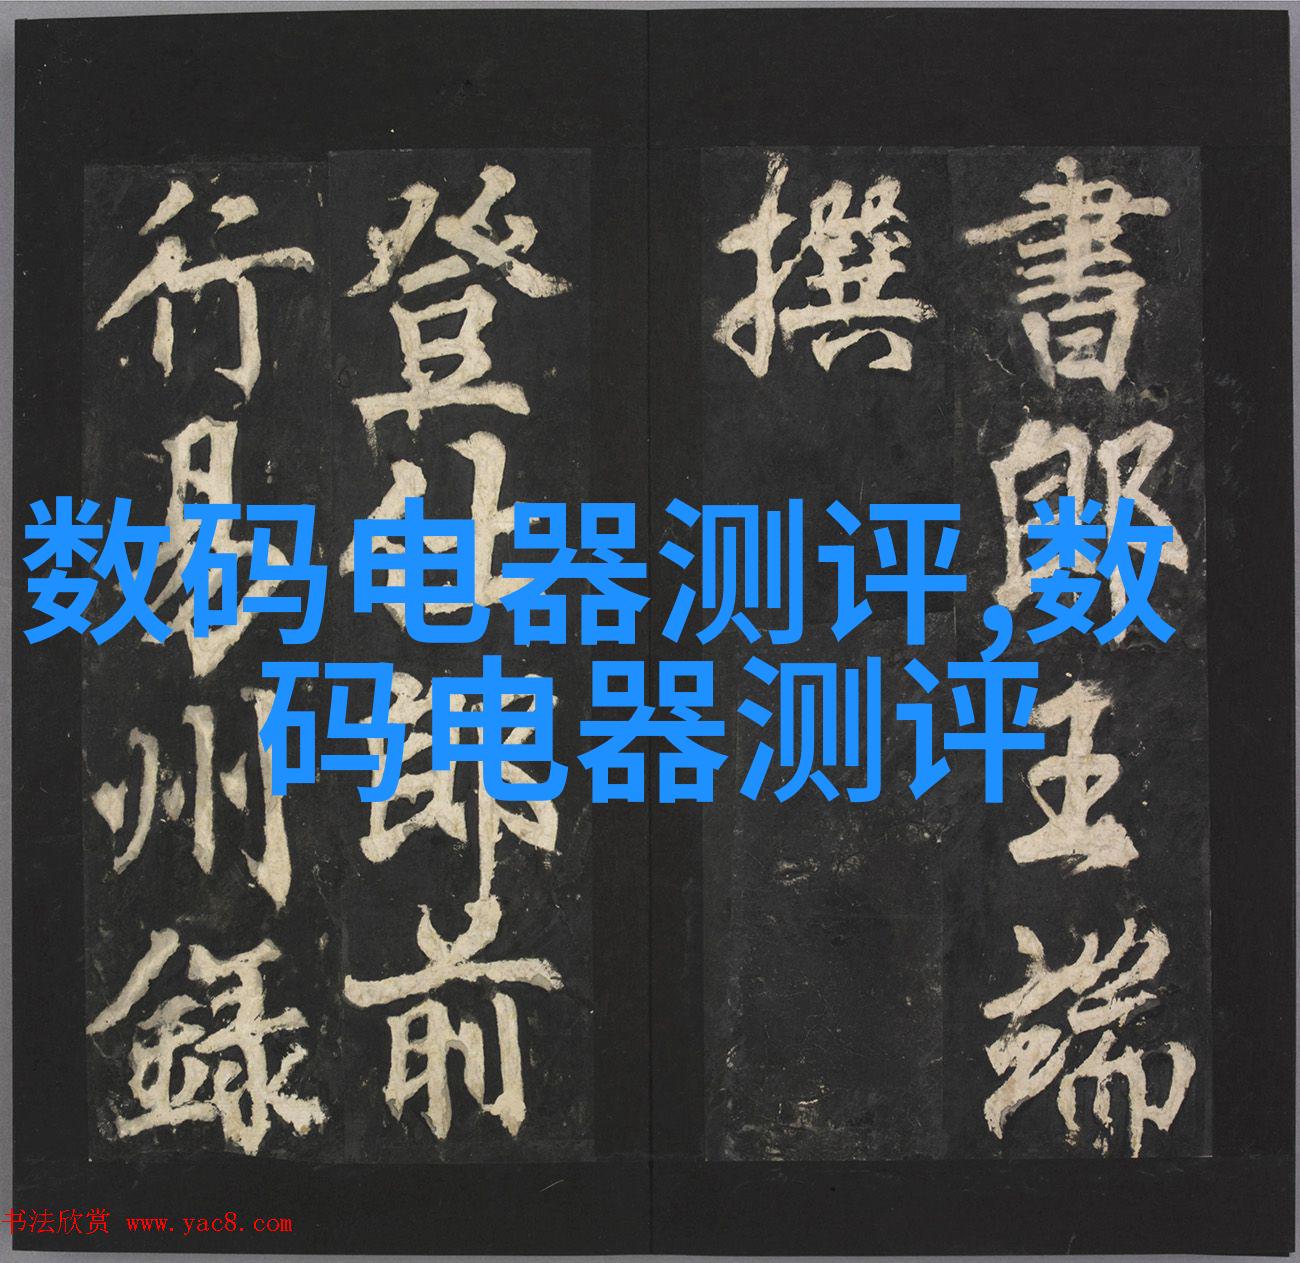 書郎王端
撰
登仕郎前
行易州錄
数码电器测评,数
码电器测评
书法欣赏 www.yac8.com